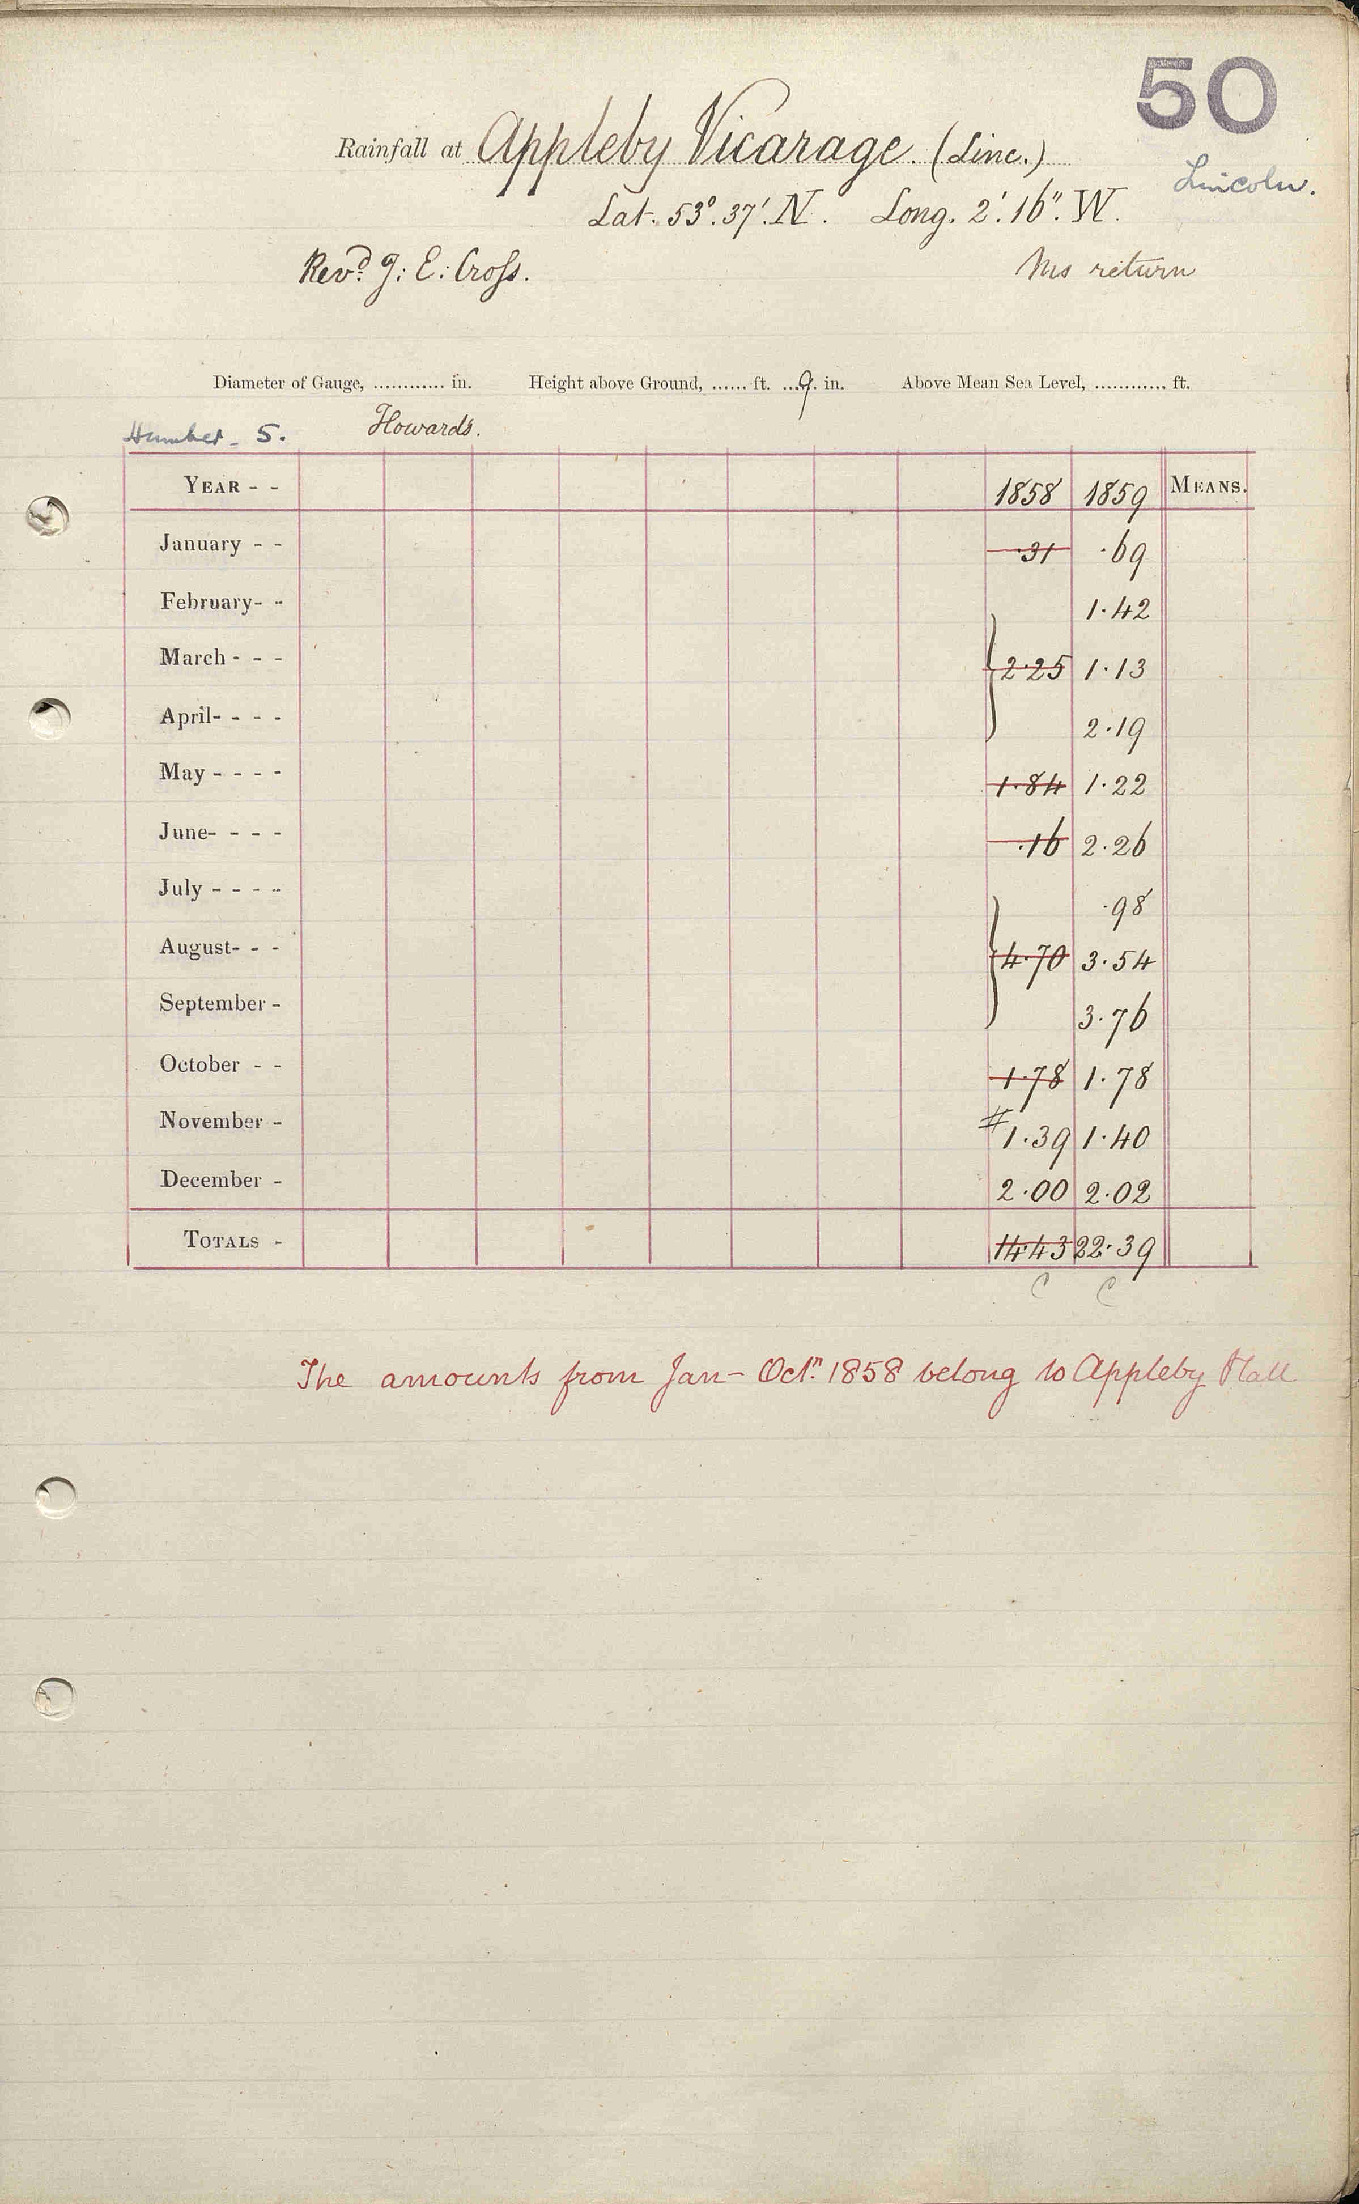 50
Rainfall at Appleby Vicarage. (Linc.)
Lincoln.
Lat. 53°. 37'. N. Long. 2'. 16". W.
Revd. J: E: Cross.
Ms return
Diameter of Gauge, ............ in. Height above Ground, ...... ft. ...9. in. Above Mean Sea Level, ............ ft.
Humber - 5. Howards.
YEAR - - 1858 1859 MEANS.
January - - .31 .69
February- - 1.42
March - - - 2.25 1.13
April- - - - 2.19
May - - - - 1.84 1.22
June- - - - .16 2.26
July - - - - .98
August- - - 4.70 3.54
September - 3.76
October - - 1.78 1.78
November - # 1.39 1.40
December - 2.00 2.02
TOTALS - 14.43 22.39
C C
The amounts from Jan - Octr. 1858 belong to Appleby Hall